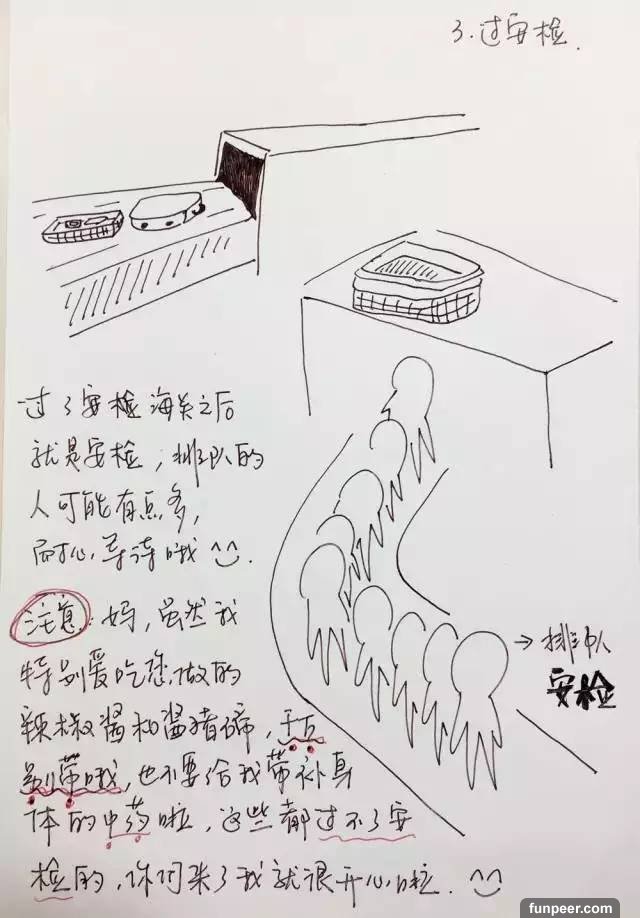 3.过安检.
过了安检海关之后
就是安检，排队的
人可能有点多，
耐心等待哦^_^.
→排队
安检
注意：妈，虽然我
特别爱吃您做的
辣椒酱和酱猪蹄，千万
别带哦，也不要给我带补身
体的中药啦，这些都过不了安
检的，你们来了我就很开心啦.^_^
funpeer.com